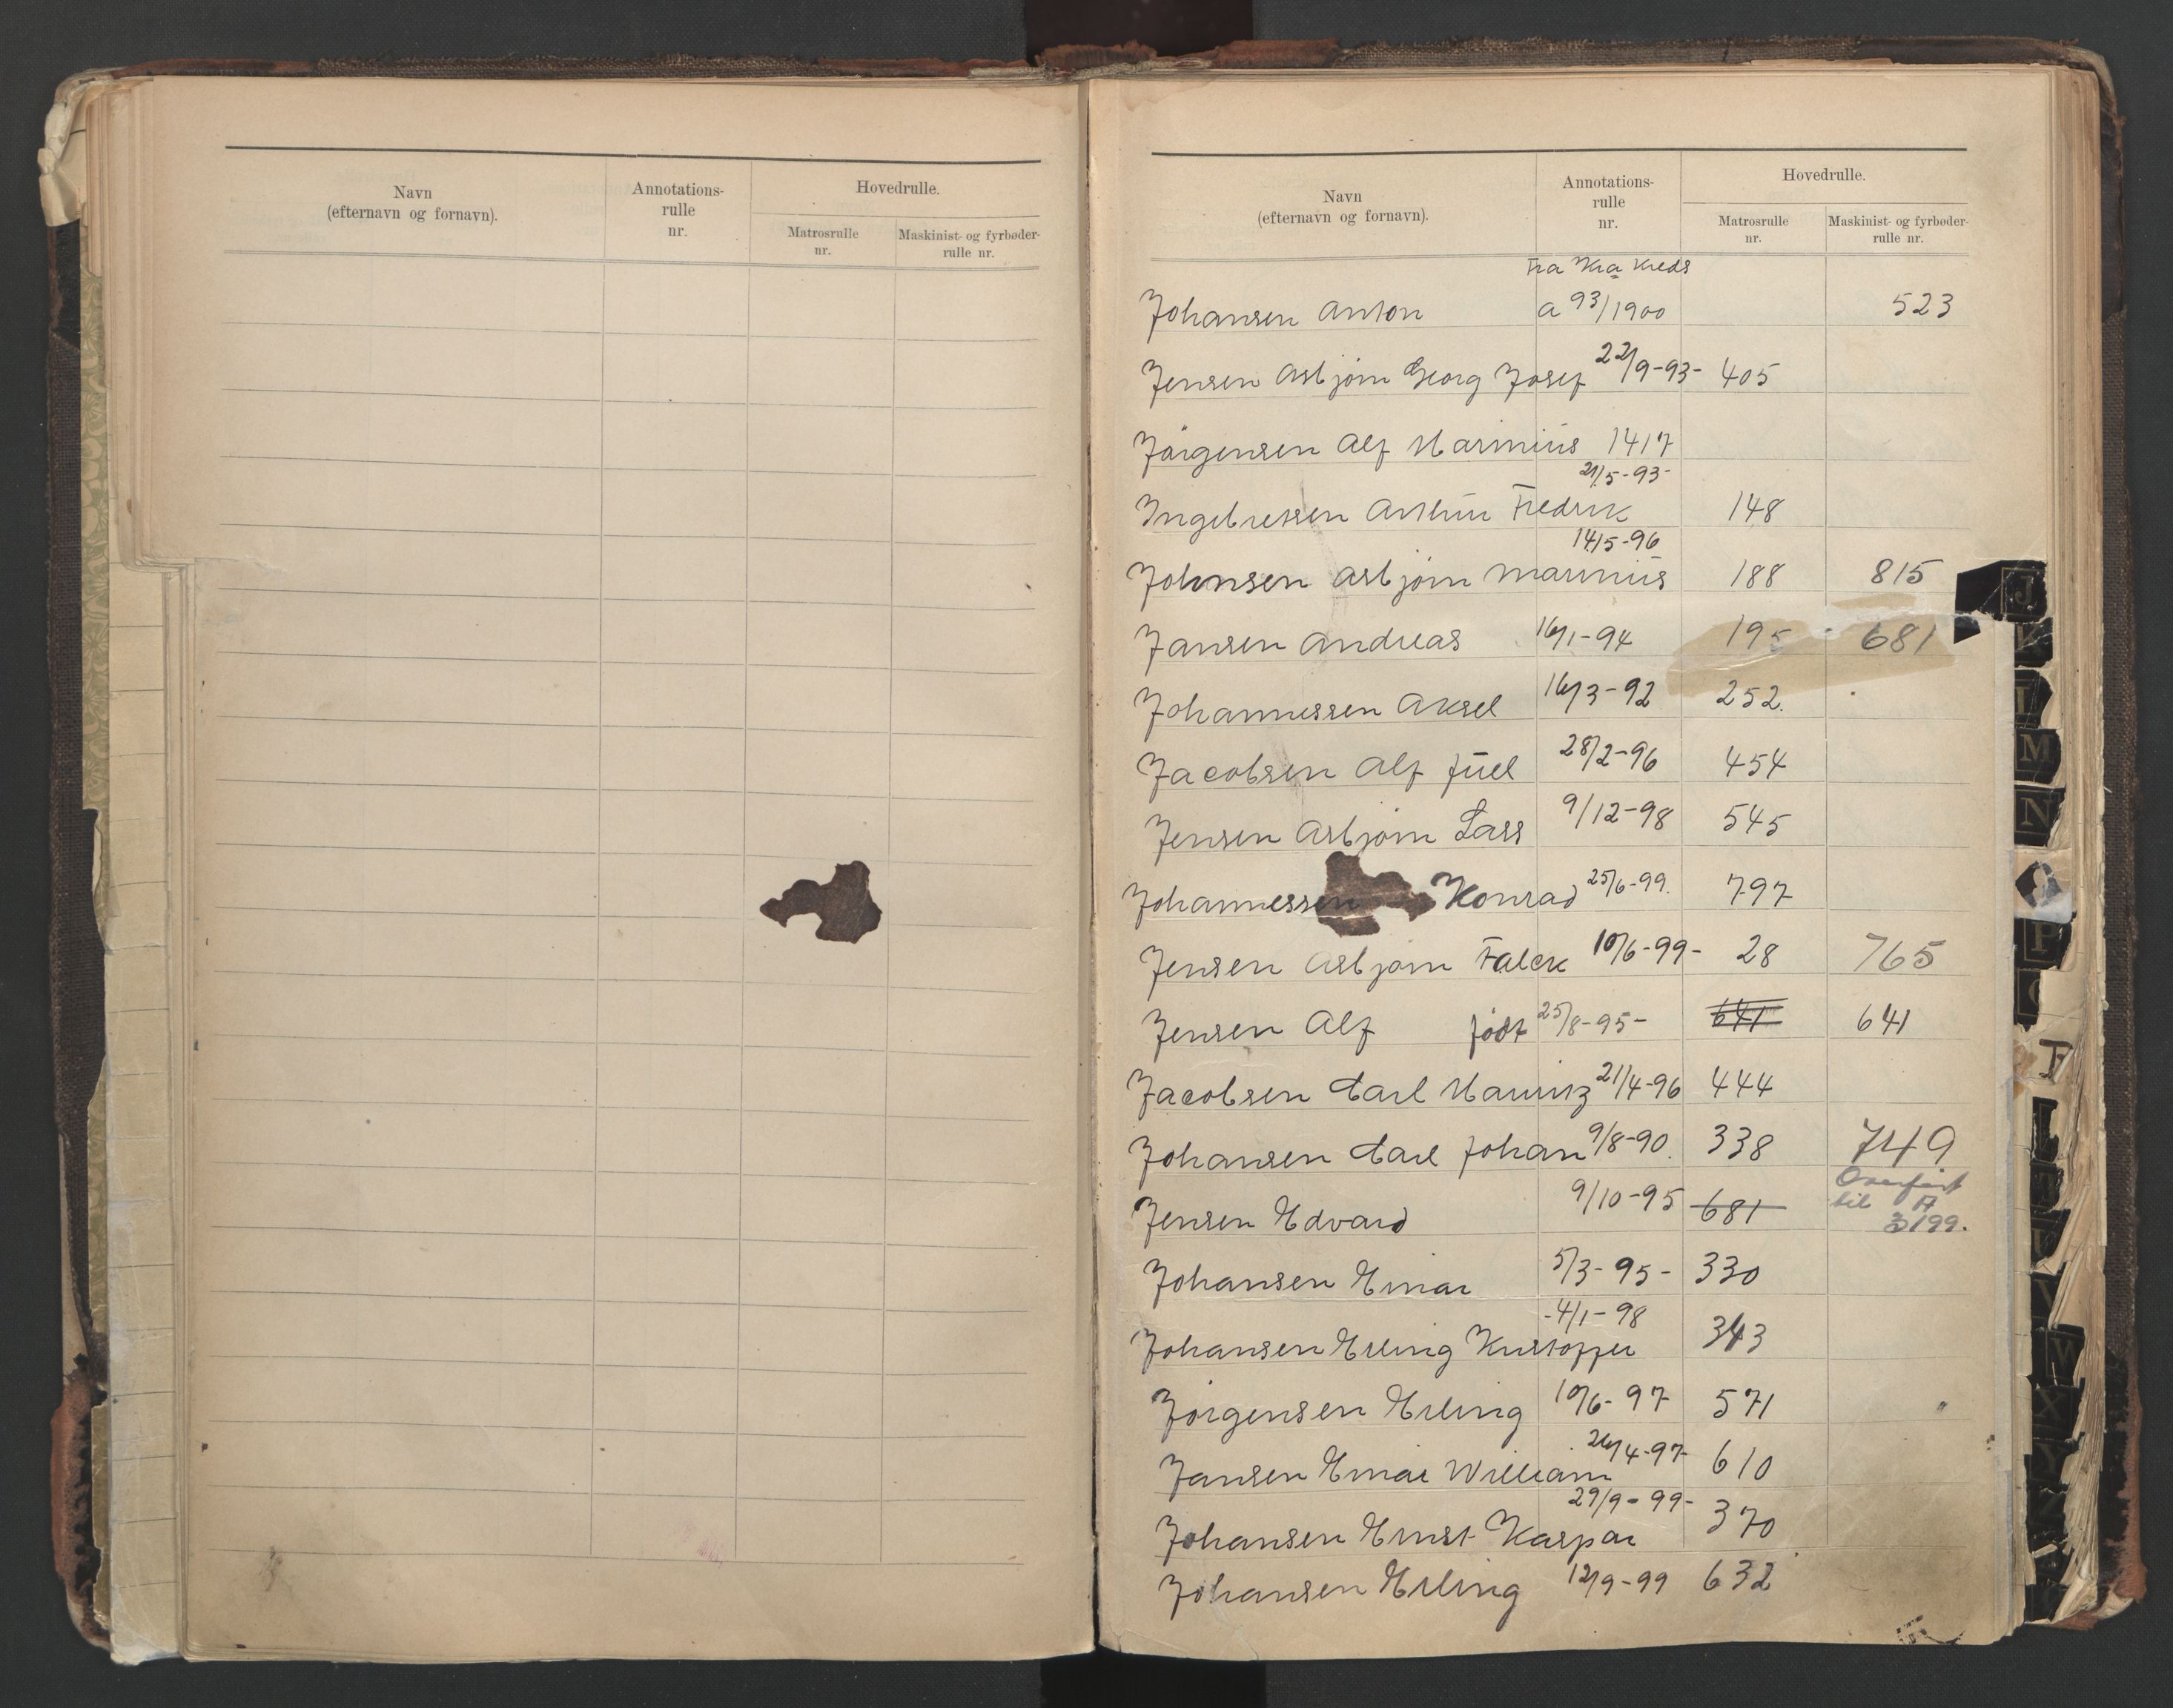 Navn
(efternavn og fornavn).
Annotations-
rulle
nr.
Hovedrulle.
Matrosrulle
nr.
Maskinist- og fyrbøder-
rulle nr.
Navn
(efternavn og fornavn).
Annotations-
rulle
nr.
Hovedrulle.
Matrosrulle
nr.
Maskinist- og fyrbøder-
rulle nr.
Fra Kra Kreds
Johansen Anton a 93/1900 523
Jensen Asbjørn Georg Josef 22/9-93- 405
Jörgensen Alf Marinius 1417
21/5-93-
Ingebretsen Arthur Fredrik 148
14/5-96
Johnsen Asbjørn Marinius 188 815
Jansen Andreas 16/1-94 195 681
Johannessen Aksel 16/3-92 252.
Jacobsen Alf Juel 28/2-96 454
Jensen Asbjørn Lass 9/12-98 545
Johannessen Konrad 25/6-99. 797
Jensen Asbjørn Falck 10/6-99- 28 765
Jensen Alf født 25/8-95- 641 641
Jacobsen Carl Mauritz 21/4-96 444
Johansen Carl Johan 9/8-90. 338 749
Jensen Edvard 9/10-95 681 Overført
til A
3199.
Johansen Einar 5/3-95- 330
-4/1-98
Johansen Erling Kristoffer 343
Jörgensen Erling 10/6-97 571
Jansen Einar William 26/4-97- 610
29/9-99-
Johansen Ernst Kaspar 370
Johansen Erling 12/9-99 632
J
K
L
M
N
P